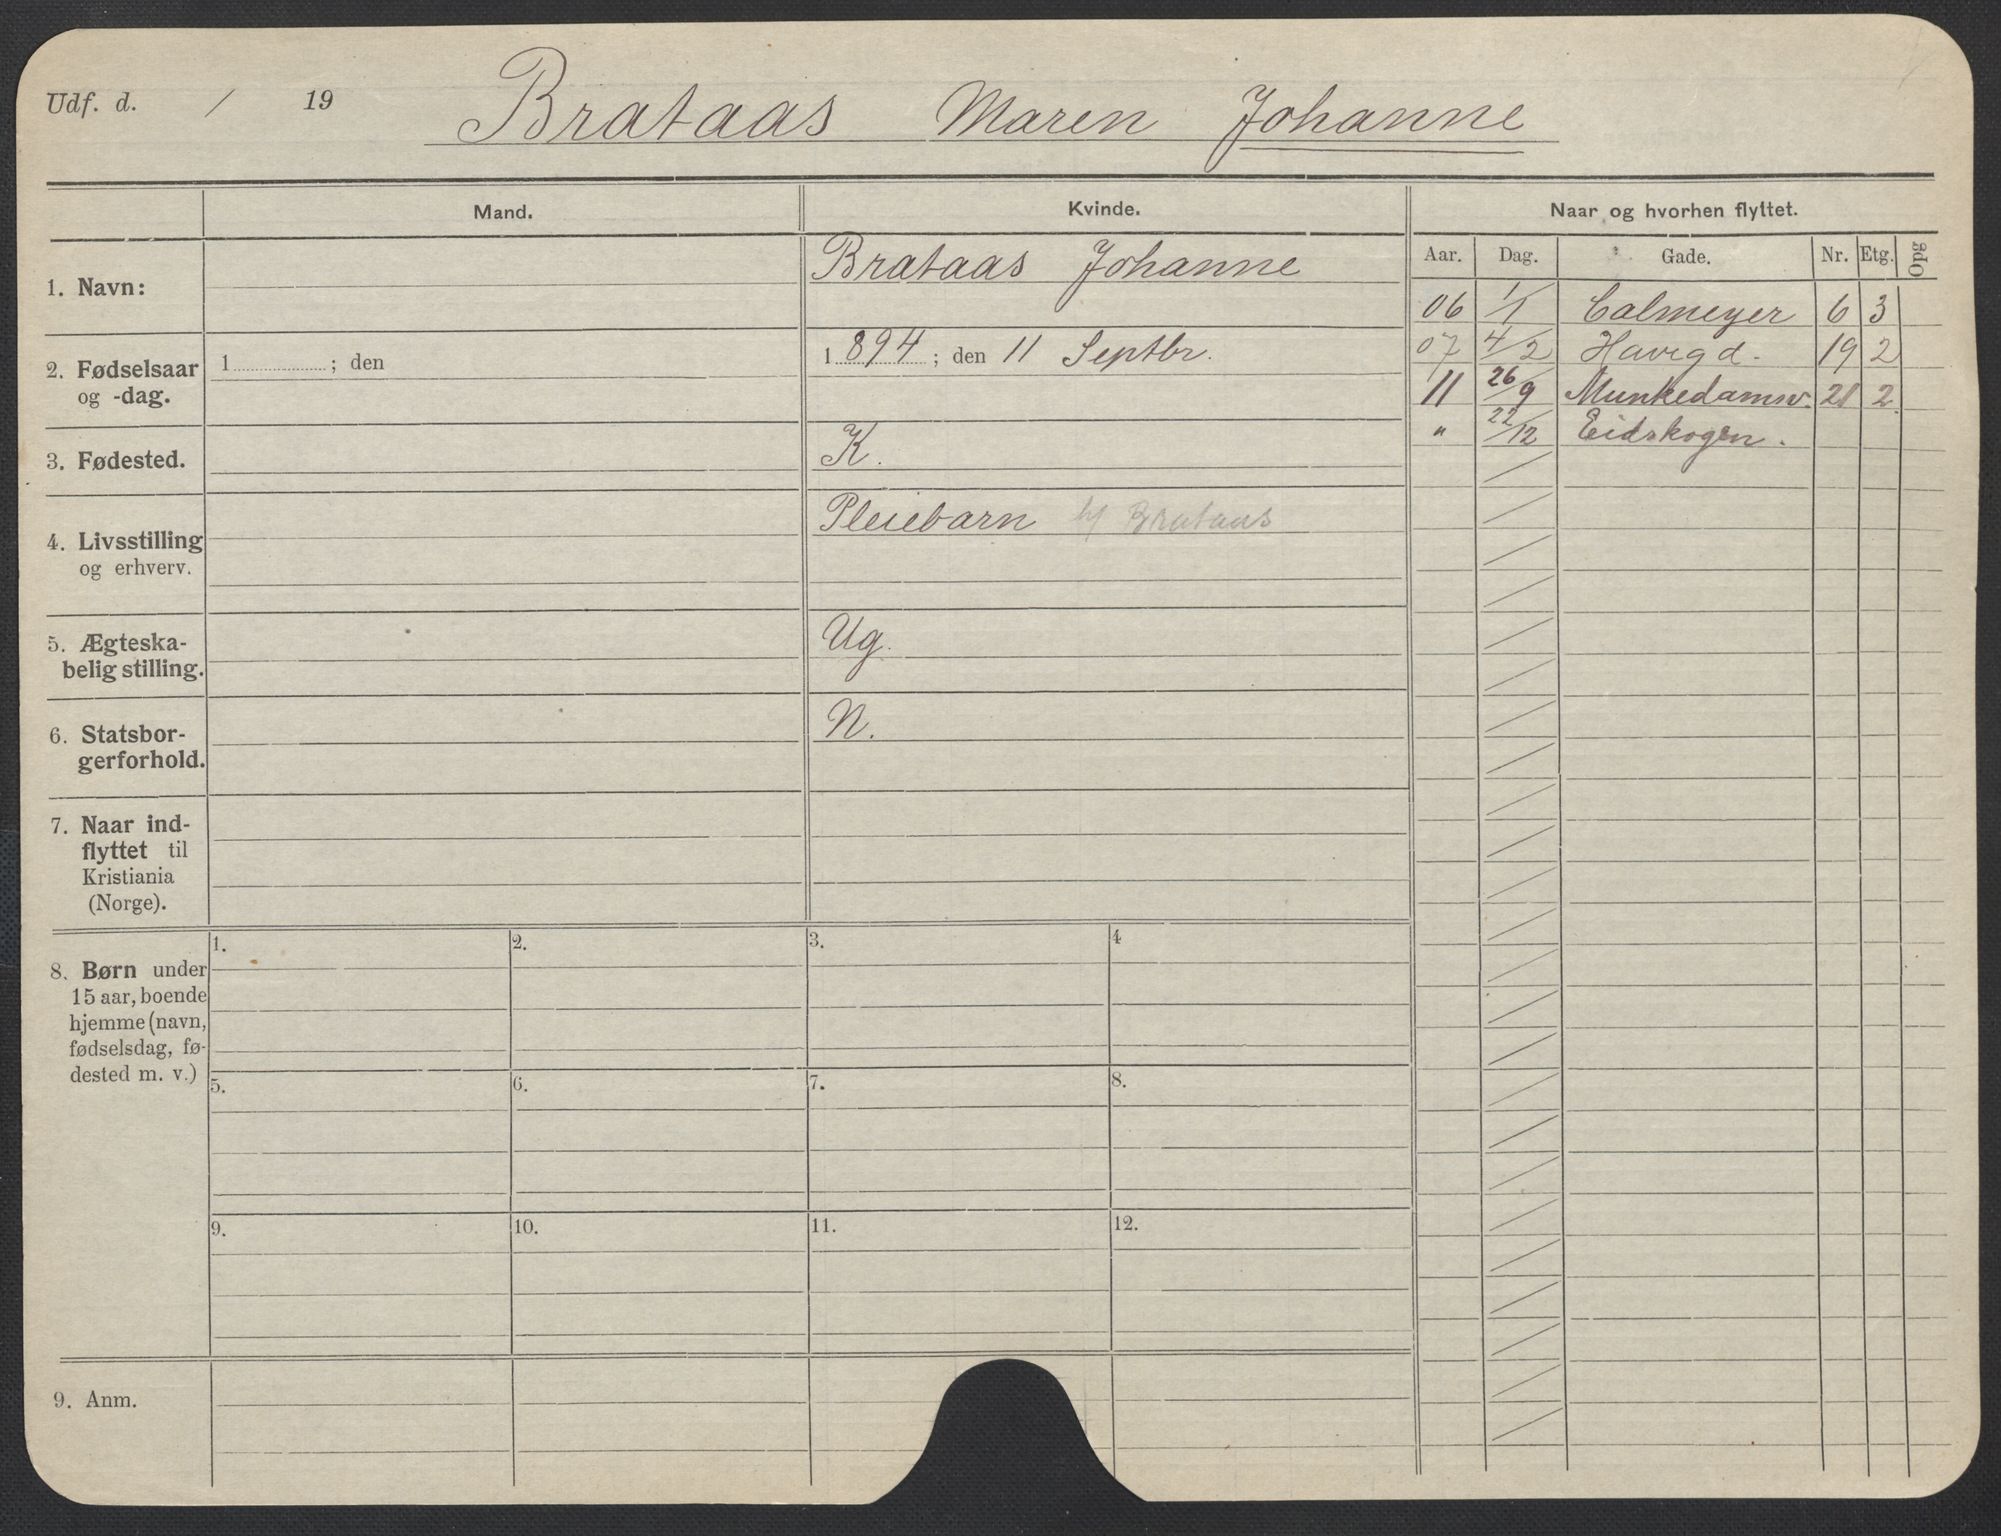 Udf. d. / 19 Brataas Maren Johanne
Mand. Kvinde. Naar og hvorhen flyttet.
Aar. Dag. Gade. Nr. Etg. Opg
1. Navn: Brataas Johanne
06 1/1 Calmeyer 6 3
2. Fødselsaar og -dag. 1 ; den 1894 ; den 11 Septbr.
07 4/2 Havegd. 19 2
11 26/9 Munkedamsv. 21 2
" 22/12 Eidskogen.
3. Fødested. K.
4. Livsstilling og erhverv. Pleiebarn h/ Brataas
5. Ægteska-
belig stilling. Ug.
6. Statsbor-
gerforhold. N.
7. Naar ind-
flyttet til
Kristiania
(Norge).
8. Børn under
15 aar, boende
hjemme (navn,
fødselsdag, fø-
dested m. v.)
1. 2. 3. 4
5. 6. 7. 8.
9. 10. 11. 12.
9. Anm.